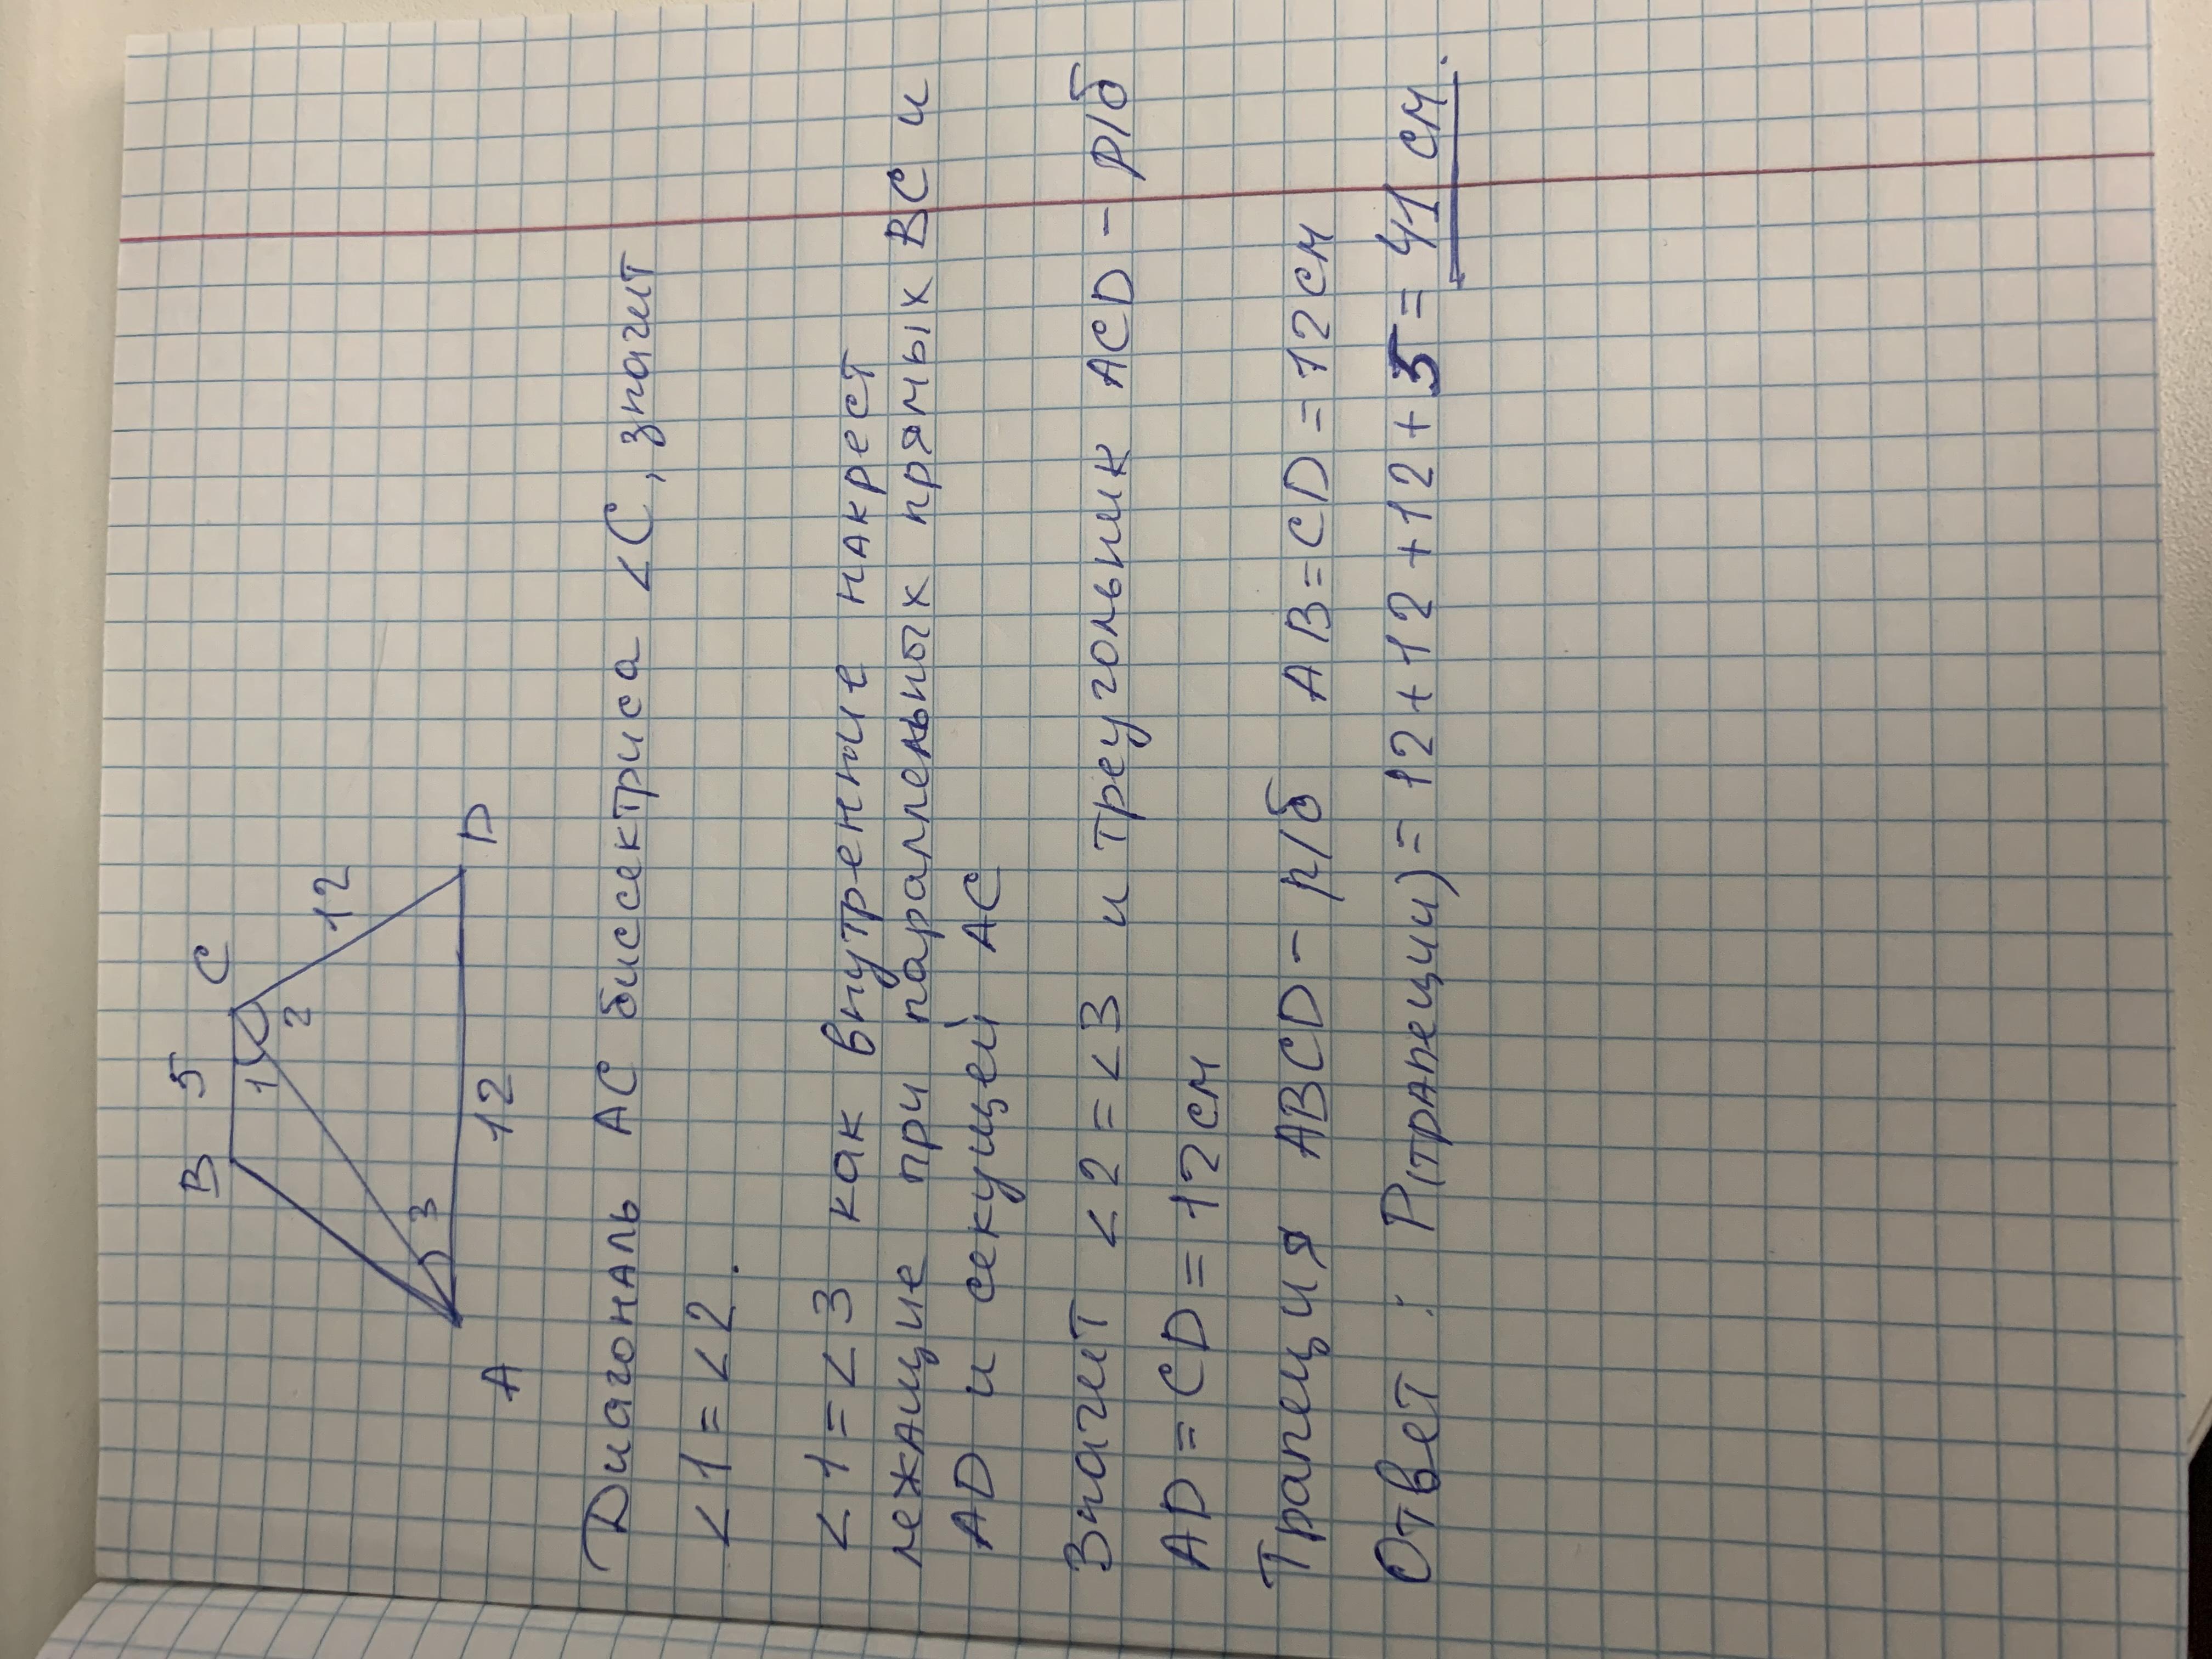 B 5 C
1
2
12
3
A 12 D
Диагональ AC биссектриса <C, значит
<1 = <2.
<1 = <3 как внутренние накрест
лежащие при параллельных прямых BC и
AD и секущей AC
Значит <2 = <3 и треугольник ACD - р/б
AD = CD = 12 см
Трапеция ABCD - р/б AB = CD = 12 см
Ответ: P(трапеции) = 12 + 12 + 12 + 5 = 41 см.